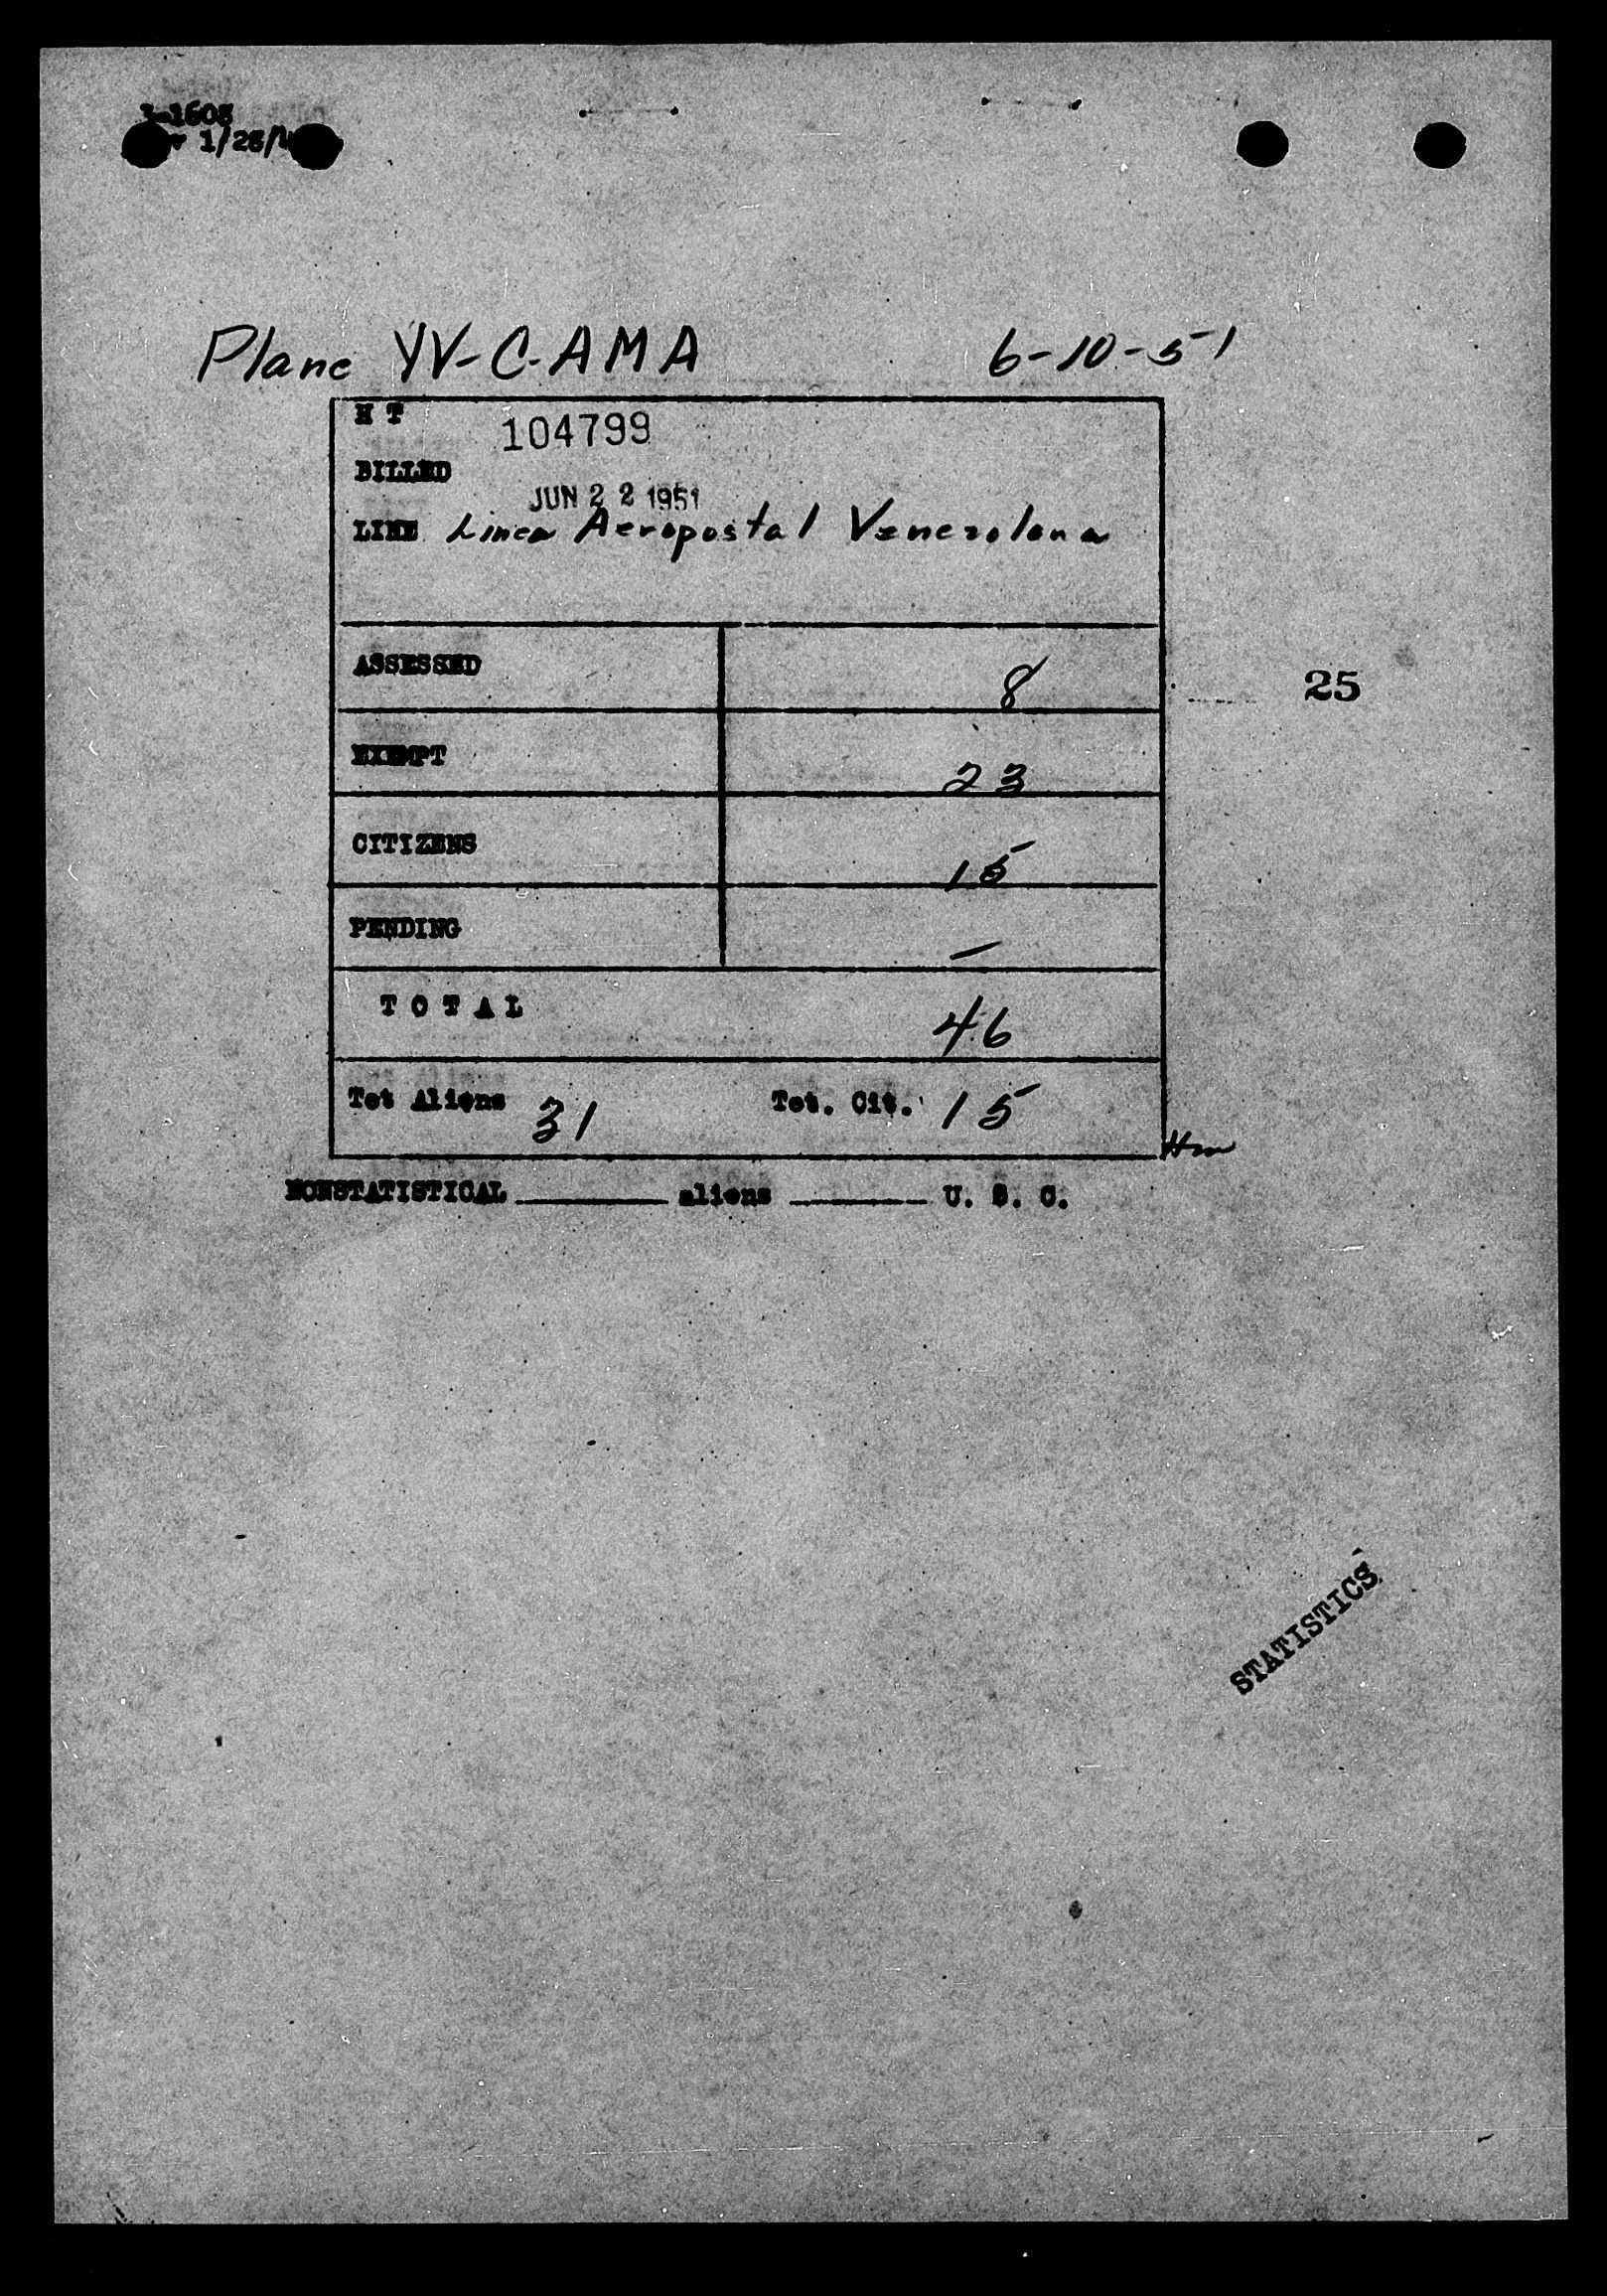 1-1608
1/28/
Plane YV-C-AMA 6-10-51
H T 104799
BILLED
JUN 2 2 1951
LINE Linea Aeropostal Venezolana
ASSESSED 8
25
EXEMPT 23
CITIZENS 15
PENDING —
T O T A L 46
Tot Aliens 31 Tot. Cit. 15
Hm
NONSTATISTICAL ________ aliens ________ U. S. C.
STATISTICS